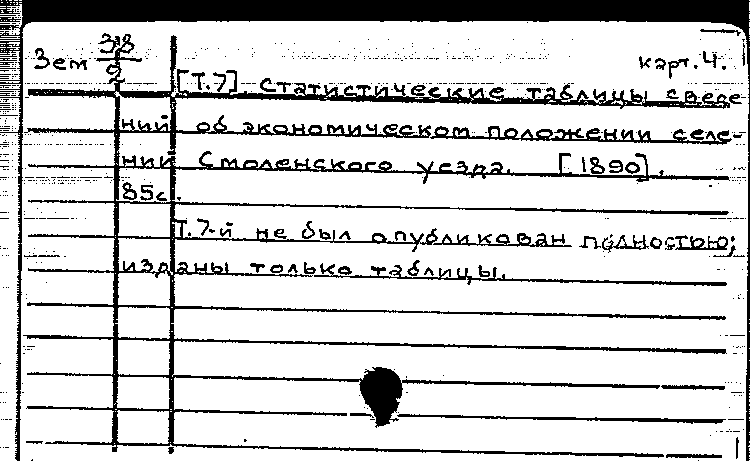 Зем 33/2 карт. 4.
[Т.7]. Статистические таблицы сведе
ний об экономическом положении селе-
ний Смоленского уезда. [1890].
85с.
Т.7-й не был опубликован полностью;
изданы только таблицы.